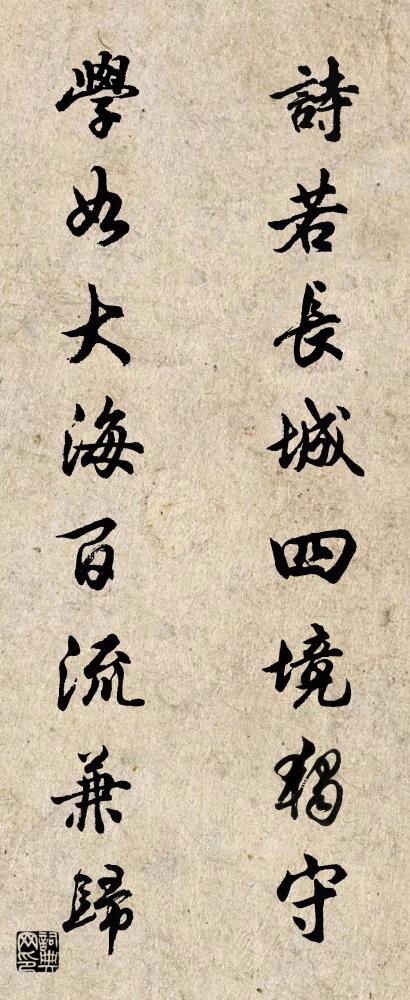 詩若長城四境獨守
學如大海百流兼歸
詞典網印